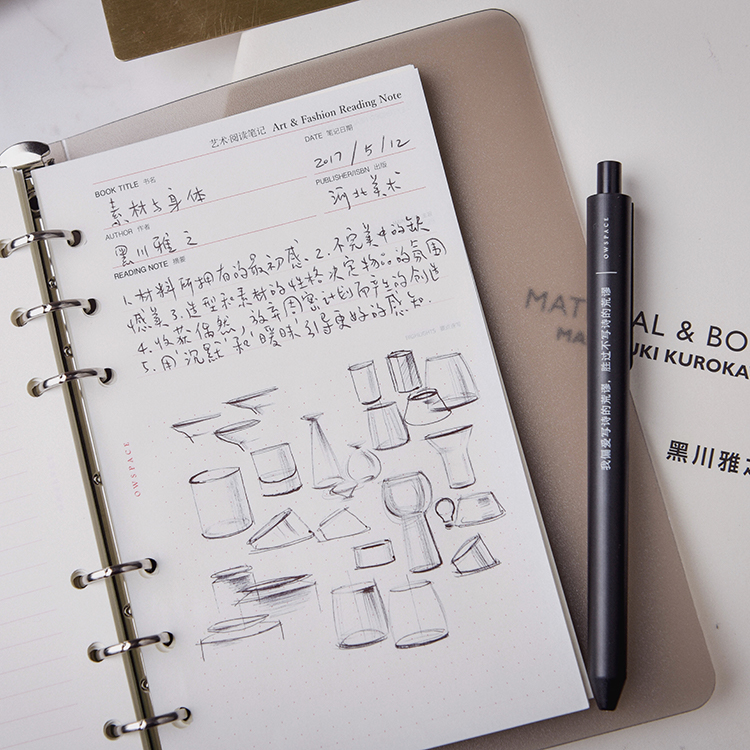 艺术·阅读笔记 Art & Fashion Reading Note
DATE 笔记日期
2017/5/12
BOOK TITLE 书名
素材与身体
PUBLISHER/ISBN 出版
河北美术
AUTHOR 作者
黑川雅之
READING NOTE 摘要
1.材料所拥有的最初感。2.不完美中的缺
憾美 3.造型和素材的性格决定物品的氛围
4.收获偶然，放弃周密计划而产生的创造
5.用“沉默”和“暧昧”引导更好的感知.
OWSPACE
OWSPACE
我偏爱写诗的荒谬，胜过不写诗的荒谬
AL & BO
UKI KUROKA
黑川雅之